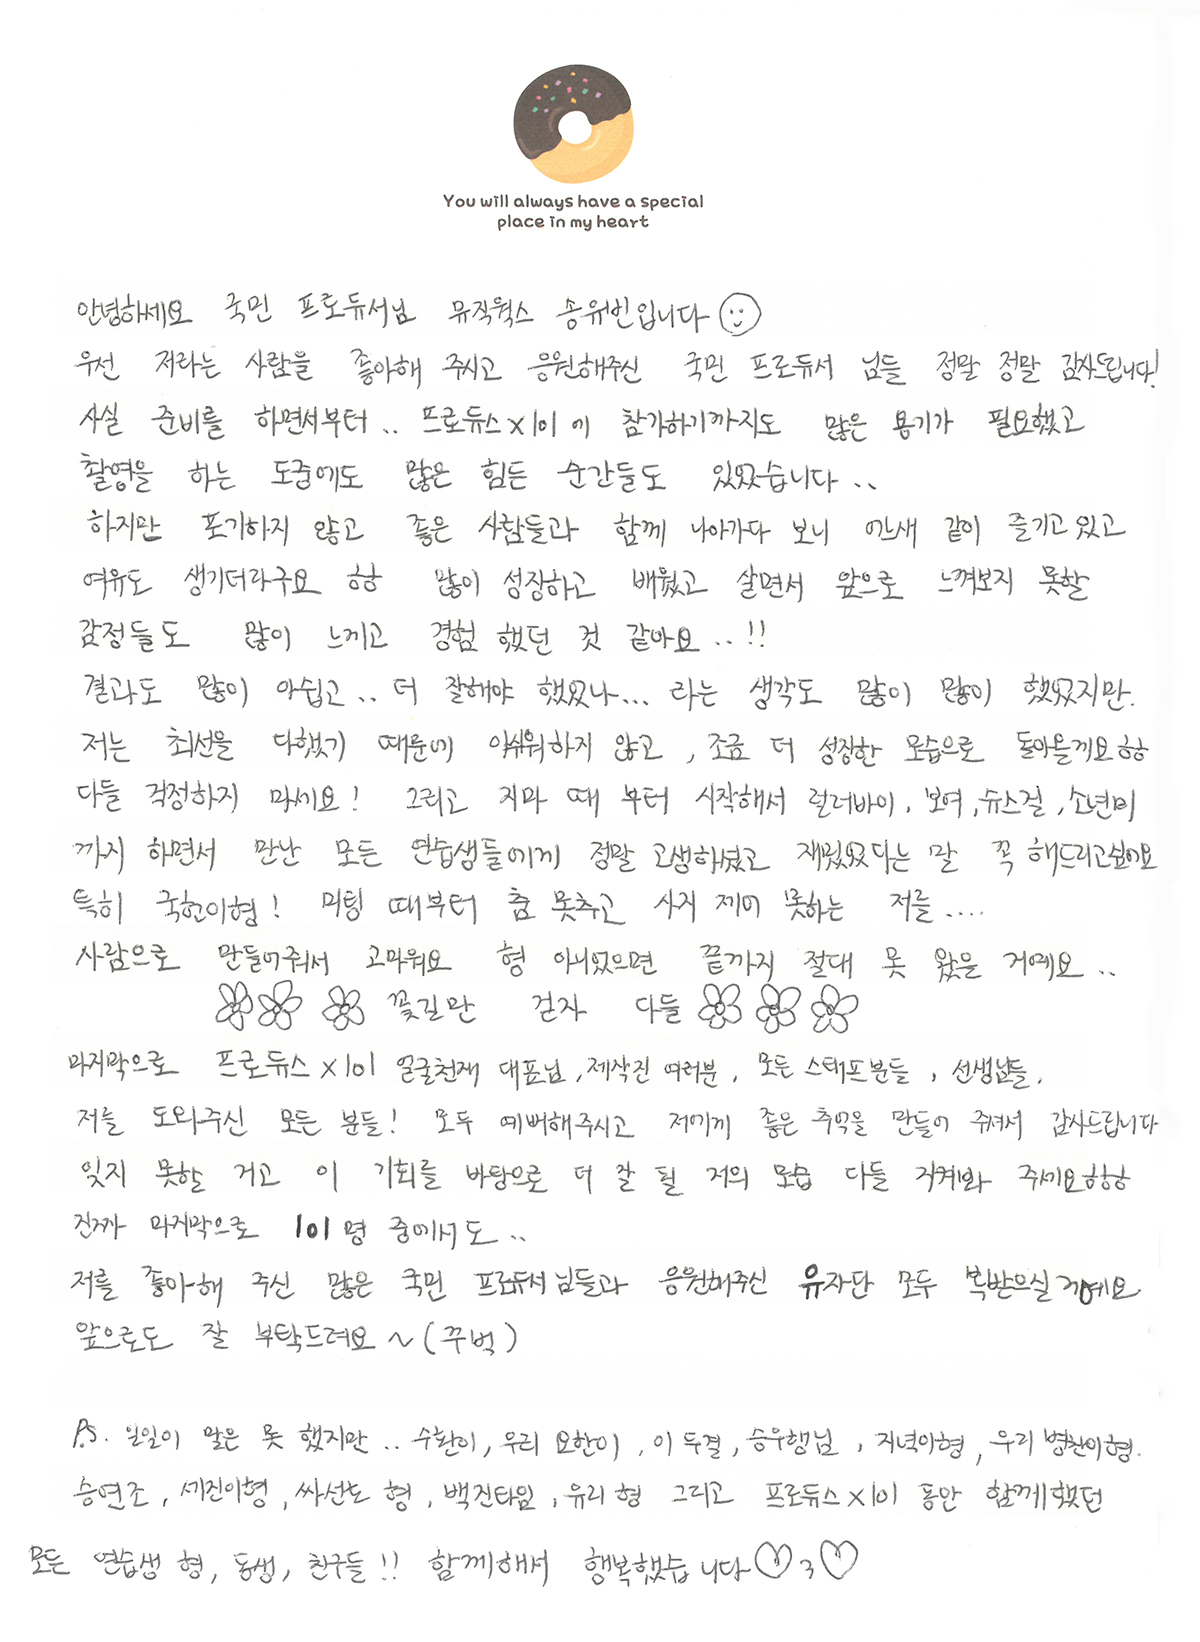 You will always have a special
place in my heart
안녕하세요 국민 프로듀서님 뮤직웍스 송유빈입니다
우선 저라는 사람을 좋아해 주시고 응원해주신 국민 프로듀서 님들 정말 정말 감사드립니다!
사실 준비를 하면서부터.. 프로듀스x101에 참가하기까지도 많은 용기가 필요했고
촬영을 하는 도중에도 많은 힘든 순간들도 있었습니다..
하지만 포기하지 않고 좋은 사람들과 함께 나아가다 보니 어느새 같이 즐기고 있고
여유도 생기더라구요 ㅎㅎ 많이 성장하고 배웠고 살면서 앞으로 느껴보지 못할
감정들도 많이 느끼고 경험 했던 것 같아요..!!
결과도 많이 아쉽고.. 더 잘해야 했었나... 라는 생각도 많이 많이 했었지만.
저는 최선을 다했기 때문에 아쉬워하지 않고, 조금 더 성장한 모습으로 돌아올게요ㅎㅎ
다들 걱정하지 마세요! 그리고 지마 때 부터 시작해서 럴러바이, 보여, 슈스걸, 소년미
까지 하면서 만난 모든 연습생들에게 정말 고생하셨고 재밌었다는 말 꼭 해드리고싶어요
특히 국헌이형! 미팅 때부터 춤 못추고 사지 제어 못하는 저를....
사람으로 만들어줘서 고마워요 형 아니었으면 끝까지 절대 못 왔을 거예요..
꽃길만 걷자 다들
마지막으로 프로듀스x101 얼굴천재 대표님, 제작진 여러분, 모든 스태프분들, 선생님들,
저를 도와주신 모든 분들! 모두 예뻐해주시고 저에게 좋은 추억을 만들어 주셔서 감사드립니다
잊지 못할 거고 이 기회를 바탕으로 더 잘 될 저의 모습 다들 지켜봐 주세요ㅎㅎㅎ
진짜 마지막으로 101명 중에서도..
저를 좋아해 주신 많은 국민 프로듀서님들과 응원해주신 유자단 모두 복받으실거예요
앞으로도 잘 부탁드려요~(꾸벅)
P.S. 일일이 말은 못 했지만.. 수환이, 우리 요한이, 이 두결, 승우행님, 지녁이형, 우리 병찬이형.
승연조, 세진이형, 싸선도 형, 백진타임, 유리 형 그리고 프로듀스x101 동안 함께했던
모든 연습생 형, 동생, 친구들!! 함께해서 행복했습니다♡3♡